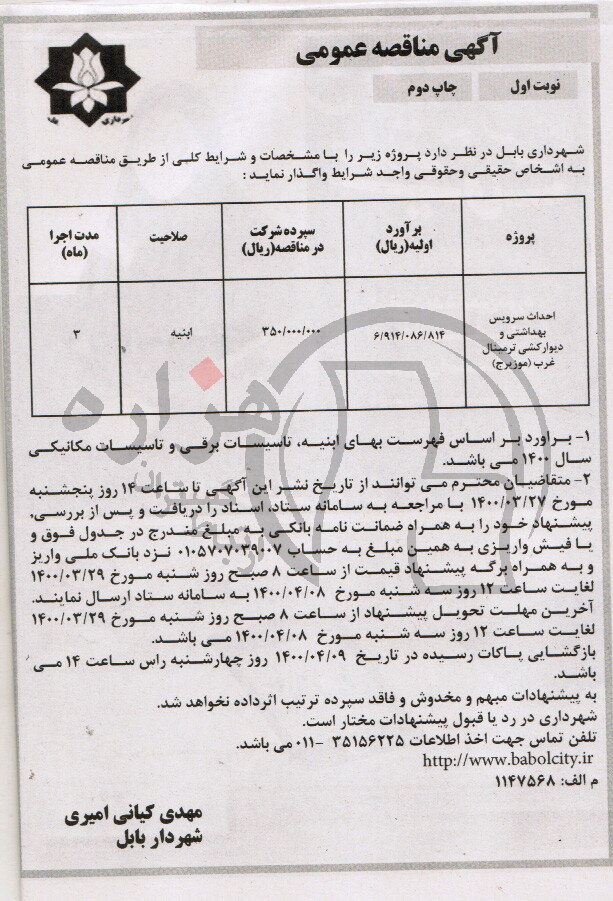 آگهی مناقصه عمومی
نوبت اول
چاپ دوم
شهرداری بابل در نظر دارد پروژه زیر را با مشخصات و شرایط کلی از طریق مناقصه عمومی
به اشخاص حقیقی وحقوقی واجد شرایط واگذار نماید :
پروژه
برآورد
اولیه(ریال)
سپرده شرکت
در مناقصه(ریال)
صلاحیت
مدت اجرا
(ماه)
احداث سرویس
بهداشتی و
دیوارکشی ترمینال
غرب (موزیرج)
۶/۹۱۴/۰۸۶/۸۱۴
۳۵۰/۰۰۰/۰۰۰
ابنیه
۳
۱- براورد بر اساس فهرست بهای ابنیه، تاسیسات برقی و تاسیسات مکانیکی
سال ۱۴۰۰ می باشد.
۲- متقاضیان محترم می توانند از تاریخ نشر این آگهی تا ساعت ۱۴ روز پنجشنبه
مورخ ۱۴۰۰/۰۳/۲۷ با مراجعه به سامانه ستاد، اسناد را دریافت و پس از بررسی,
پیشنهاد خود را به همراه ضمانت نامه بانکی به مبلغ مندرج در جدول فوق و
یا فیش واریزی به همین مبلغ به حساب ۰۱۰۵۷۰۷۰۳۹۰۰۷ نزد بانک ملی واریز
و به همراه برگه پیشنهاد قیمت از ساعت ۸ صبح روز شنبه مورخ ۱۴۰۰/۰۳/۲۹
لغایت ساعت ۱۲ روز سه شنبه مورخ ۱۴۰۰/۰۴/۰۸ به سامانه ستاد ارسال نمایند.
آخرین مهلت تحویل پیشنهاد از ساعت ۸ صبح روز شنبه مورخ ۱۴۰۰/۰۳/۲۹
لغایت ساعت ۱۲ روز سه شنبه مورخ ۱۴۰۰/۰۴/۰۸ می باشد.
بازگشایی پاکات رسیده در تاریخ ۱۴۰۰/۰۴/۰۹ روز چهارشنبه راس ساعت ۱۴ می
باشد.
به پیشنهادات مبهم و مخدوش و فاقد سپرده ترتیب اثرداده نخواهد شد.
شهرداری در رد یا قبول پیشنهادات مختار است.
تلفن تماس جهت اخذ اطلاعات ۳۵۱۵۶۲۲۵ -۰۱۱ می باشد.
http://www.babolcity.ir
م الف: ۱۱۴۷۵۶۸
مهدی کیانی امیری
شهردار بابل
هزاره